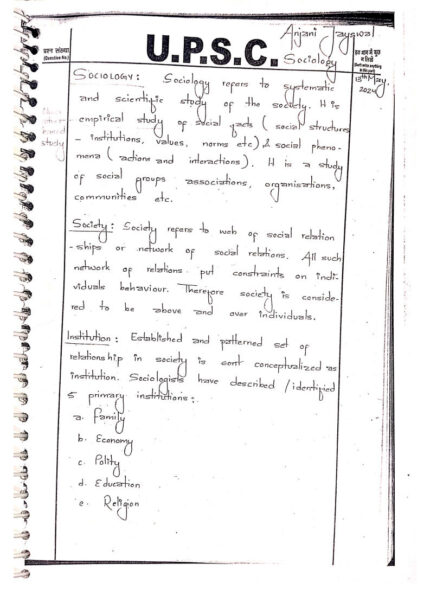 Anjani Jayswal
प्रश्न संख्या
(Question No.)
U.P.S.C.
Sociology
15th May,
2024
SOCIOLOGY: Sociology refers to systematic
and scientific study of the society. It is
empirical study of social facts (social structures
- institutions, values, norms etc) & social pheno-
mena (actions and interactions). It is a study
of social groups associations, organisations,
communities etc.
study
Society: Society refers to web of social relation
-ships or network of social relations. All such
network of relations put constraints on indi-
viduals behaviour. Therefore society is conside-
red to be above and over individuals.
Institution: Established and patterned set of
relationship in society is conceptualized as
institution. Sociologists have described / identified
5 primary institutions:
a. Family
b. Economy
c. Polity
d. Education
e. Religion